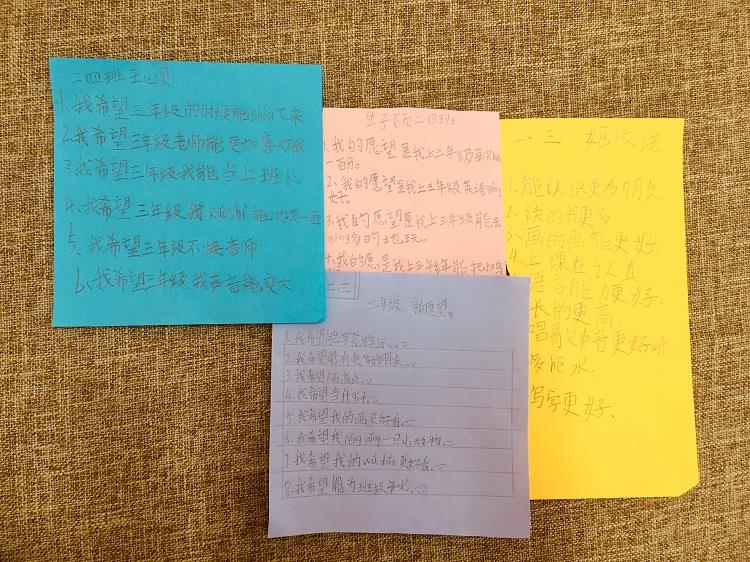 二四班王心贝
1、我希望三年级的时候能shòu下来
2、我希望三年级老师能更加喜欢我
3、我希望三年级我能当上班长
4、我希望三年级我kǎoshì能次次一百
5、我希望三年级不换老师
6、我希望三年级我声音能变大
二四班
1、我的愿望是我上三年级每次
一百分。
2、我的愿望是我上三年级英语
3、我的愿望是我上三年级能去
多的土也玩。
4、我的愿是我上三年级能把
二、三 姬依诺
1、能认识更多朋友
2、读的书更多
3、画的画能更好
4、上课在认真
语言能力更好.
长的更高.
唱歌声音更好听.
多喝水.
写字更好.
二三
三年级 新愿望。
1、我希望能学会
2、我希望能有更多的朋友
3、我希望
4、我希望当
5、我希望我的画更好看。
6、我希望我 yǎng 一只小动物。
7、我希望我的wǔ dǎo更好看。
8、我希望能为班级争光。